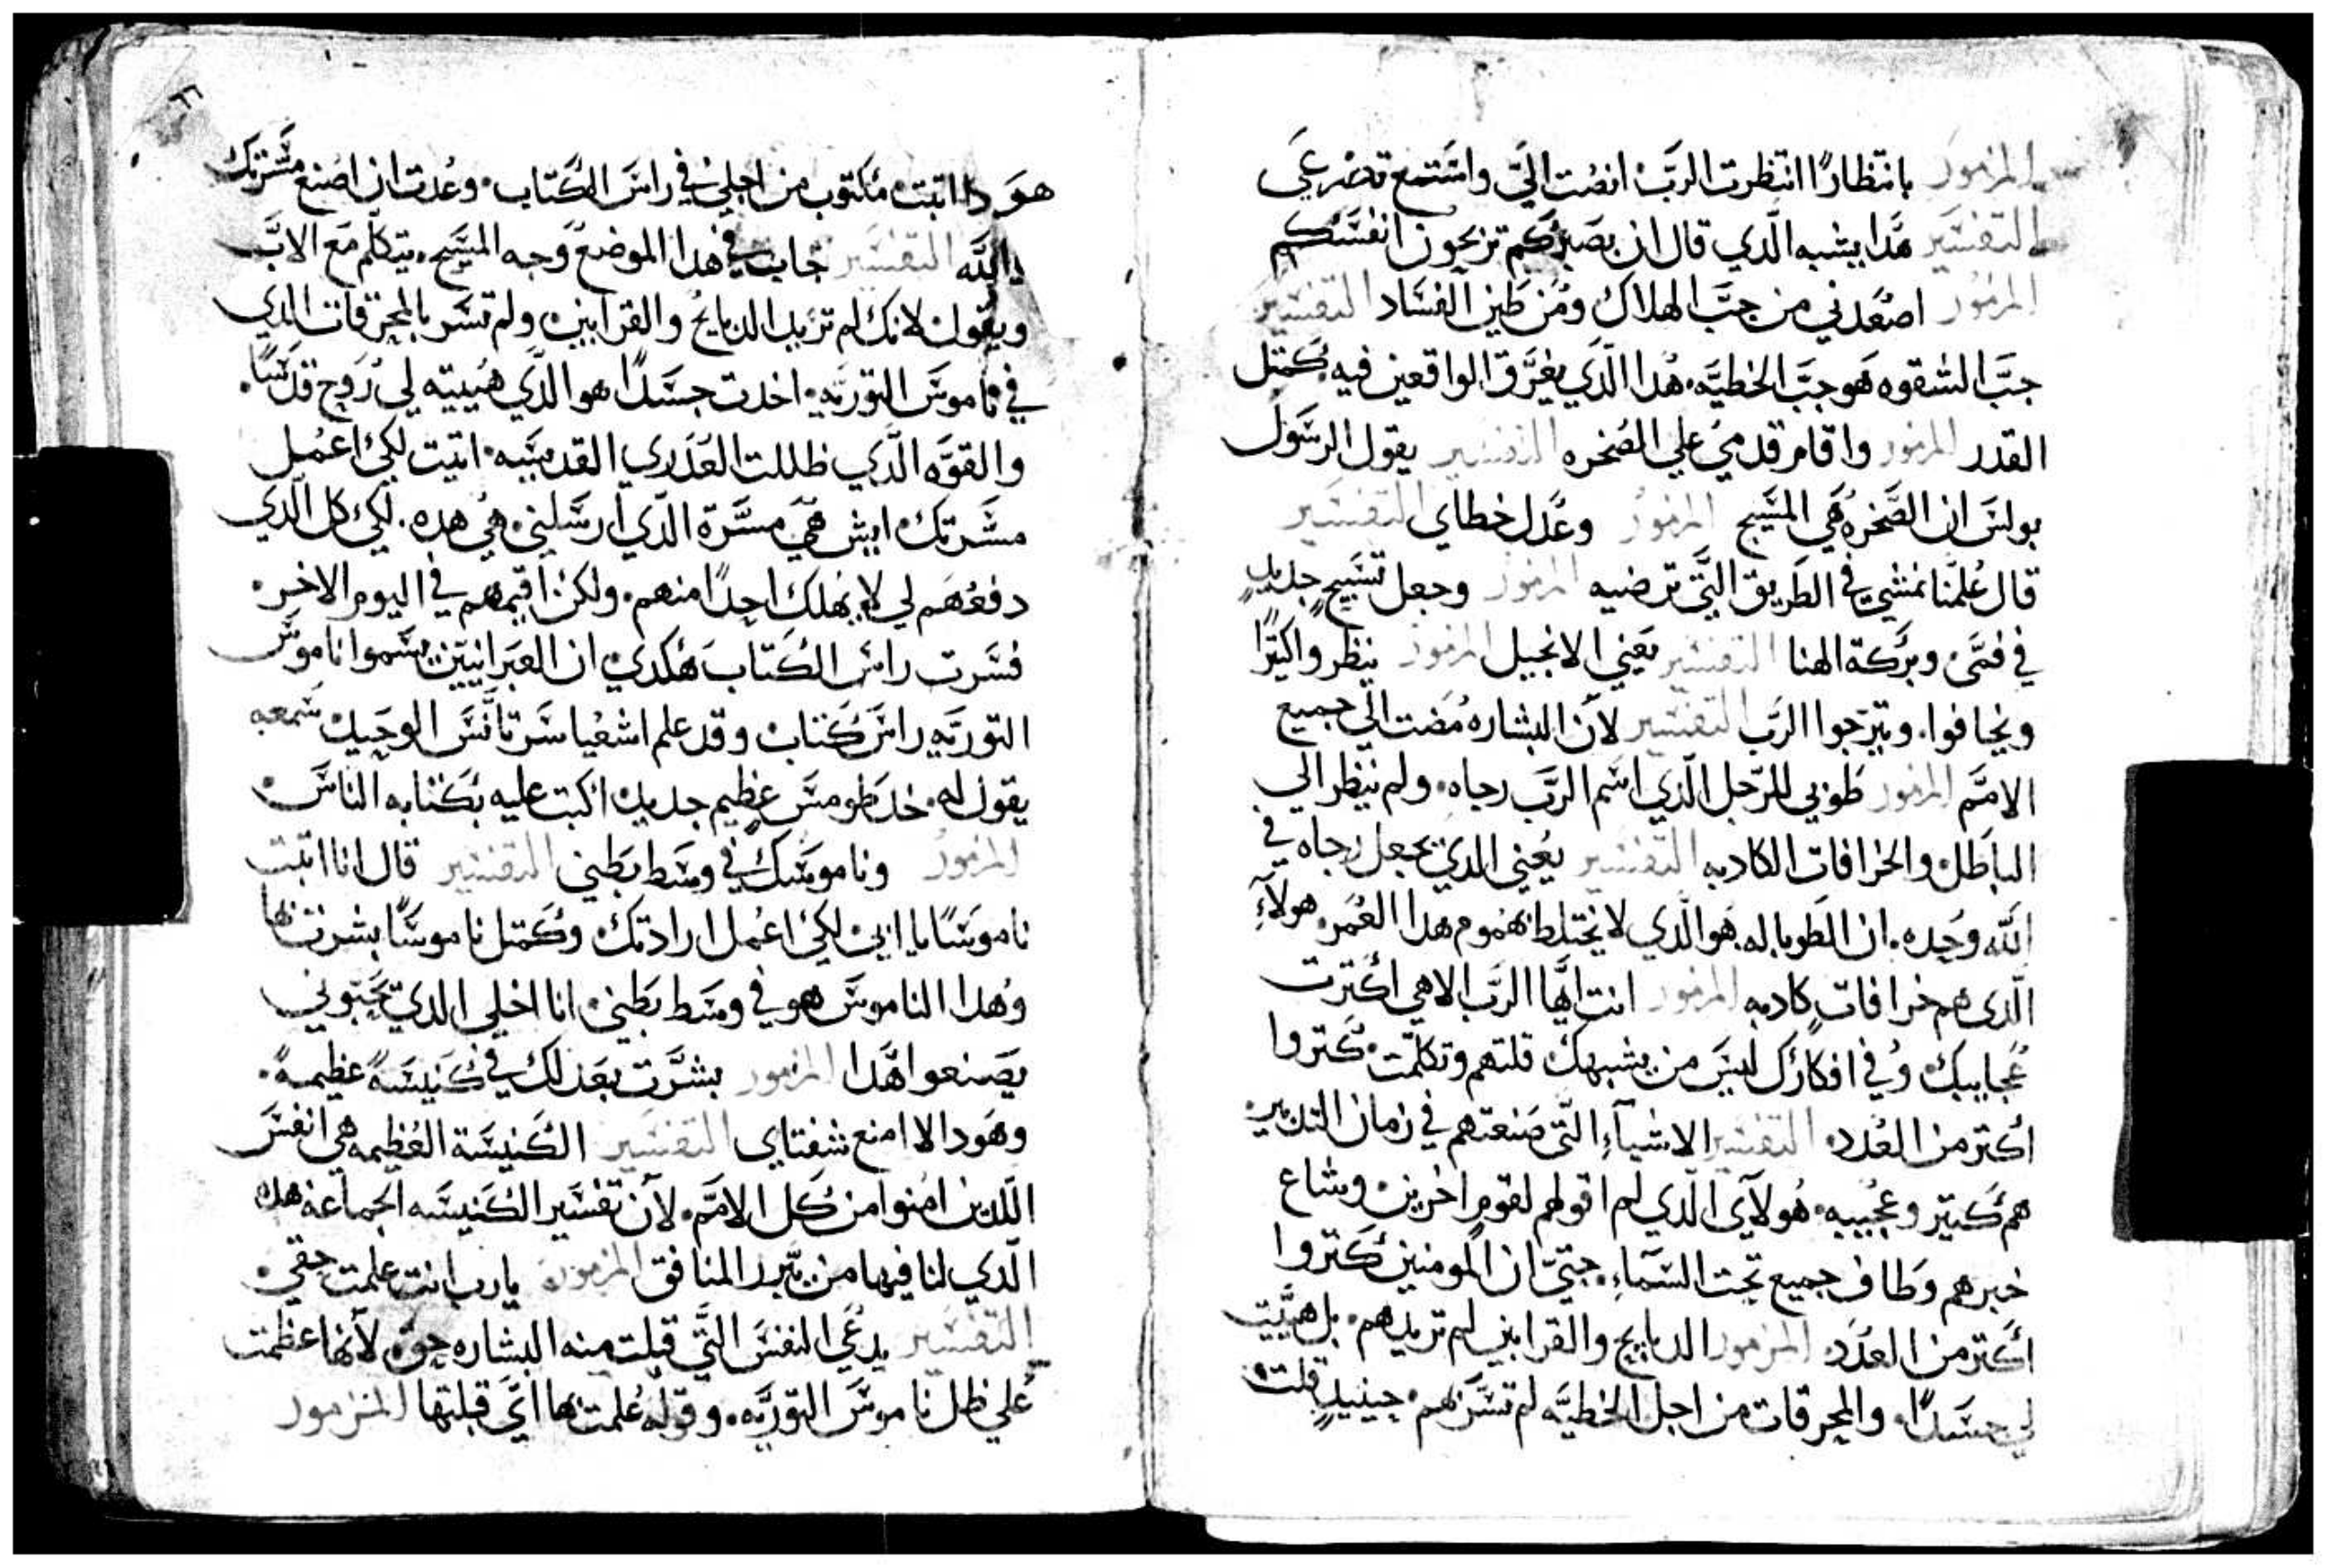 المزمور بانتظارًا انتظرت الرب انصت الي واستمع تضرعي
التفسير هدا يشبه الدي قال ان بصبركم تربحون انفسكم
المزمور اصعدني من جب الهلاك ومن طين الفساد التفسير
جب الشقوه هو جب الخطيه هدا الدي يغرق الواقعين فيه كمتل
القدر المزمور واقام قدمي علي الصخره التفسير يقول الرسول
بولس ان الصخره هي المسيح المزمور وعدل خطاي التفسير
قال علمنا نمشي في الطريق التي ترضيه المزمور وجعل تسبيح جديد
في فمي وبركة الهنا التفسير يعني الانجيل المزمور ينظروا كتيرًا
ويخافوا ويترجوا الرب التفسير لان البشاره مضت الي جميع
الامم المزمور طوبي للرجل الدي اسم الرب رجاه ولم ينظر الي
الباطل والخرافات الكادبه التفسير يعني الدي يجعل رجاه في
الله وحده ان الطوبا له هو الدي لا يختلط بهموم هدا العمر هولاء
الدي هم خرافات كادبه المزمور انت ايها الرب الاهي اكترت
عجايبك وفي افكارك ليس من يشبهك قلتهم وتكلمت كتروا
اكتر من العدد التفسير الاشياء التي صنعتهم في زمان التدبير
هم كتير وعجيبه هولاي الدي لم اقولهم لقوم اخرين وشاع
خبرهم وطاف جميع تحت السماء حتي ان المومنين كتروا
اكتر من العدد المزمور الدبايح والقرابين لم تريدهم بل هييت
لي جسدًا والمحرقات من اجل الخطيه لم تسر بهم حينيدٍ قلت
هودا اتيت مكتوب من اجلي في راس الكتاب وعدت ان اصنع مسرتك
يا الله التفسير جاب في هدا الموضع وجه المسيح يتكلم مع الاب
ويقول لانك لم تريد الدبايح والقرابين ولم تسر بالمحرقات الدي
في ناموس التوريه اخدت جسدًا هو الدي هييته لي روح قدسًا
والقوه الدي ظللت العدري القديسه اتيت لكي اعمل
مسرتك ايش هي مسرة الدي ارسلني هي هده لكي كل الدي
دفعهم لي لا يهلك احدًا منهم ولكن اقيمهم في اليوم الاخر
فسرت راس الكتاب هكدي ان العبرانيين يسموا ناموس
التوريه راس كتاب وقد علم اشعيا سر تانس الوحيد سمعه
يقول له خد طومس عظيم جديد اكبت عليه بكتابه الناس
المزمور وناموسك في وسط بطني التفسير قال انا اتيت
ناموسًا يا ابي لكي اعمل ارادتك وكمتل ناموسًا بشرت بها
وهدا الناموس هو في وسط بطني انا اخلي الدي يحبوني
يصنعوا هدا المزمور بشرت بعدلك في كنيسة عظيمة
وهودا لا امنع شفتاي التفسير الكنيسة العظيمه هي انفس
اللدين امنوا من كل الامم لان تفسير الكنيسه الجماعه هده
الدي لنا فيها من يبرر المنافق المزمور يارب انت علمت حقي
التفسير يدعي النفس التي قبلت منه البشاره حق لانها عظمت
علي ظل ناموس التوريه وقوله علمت ها اي قبلتها المزمور